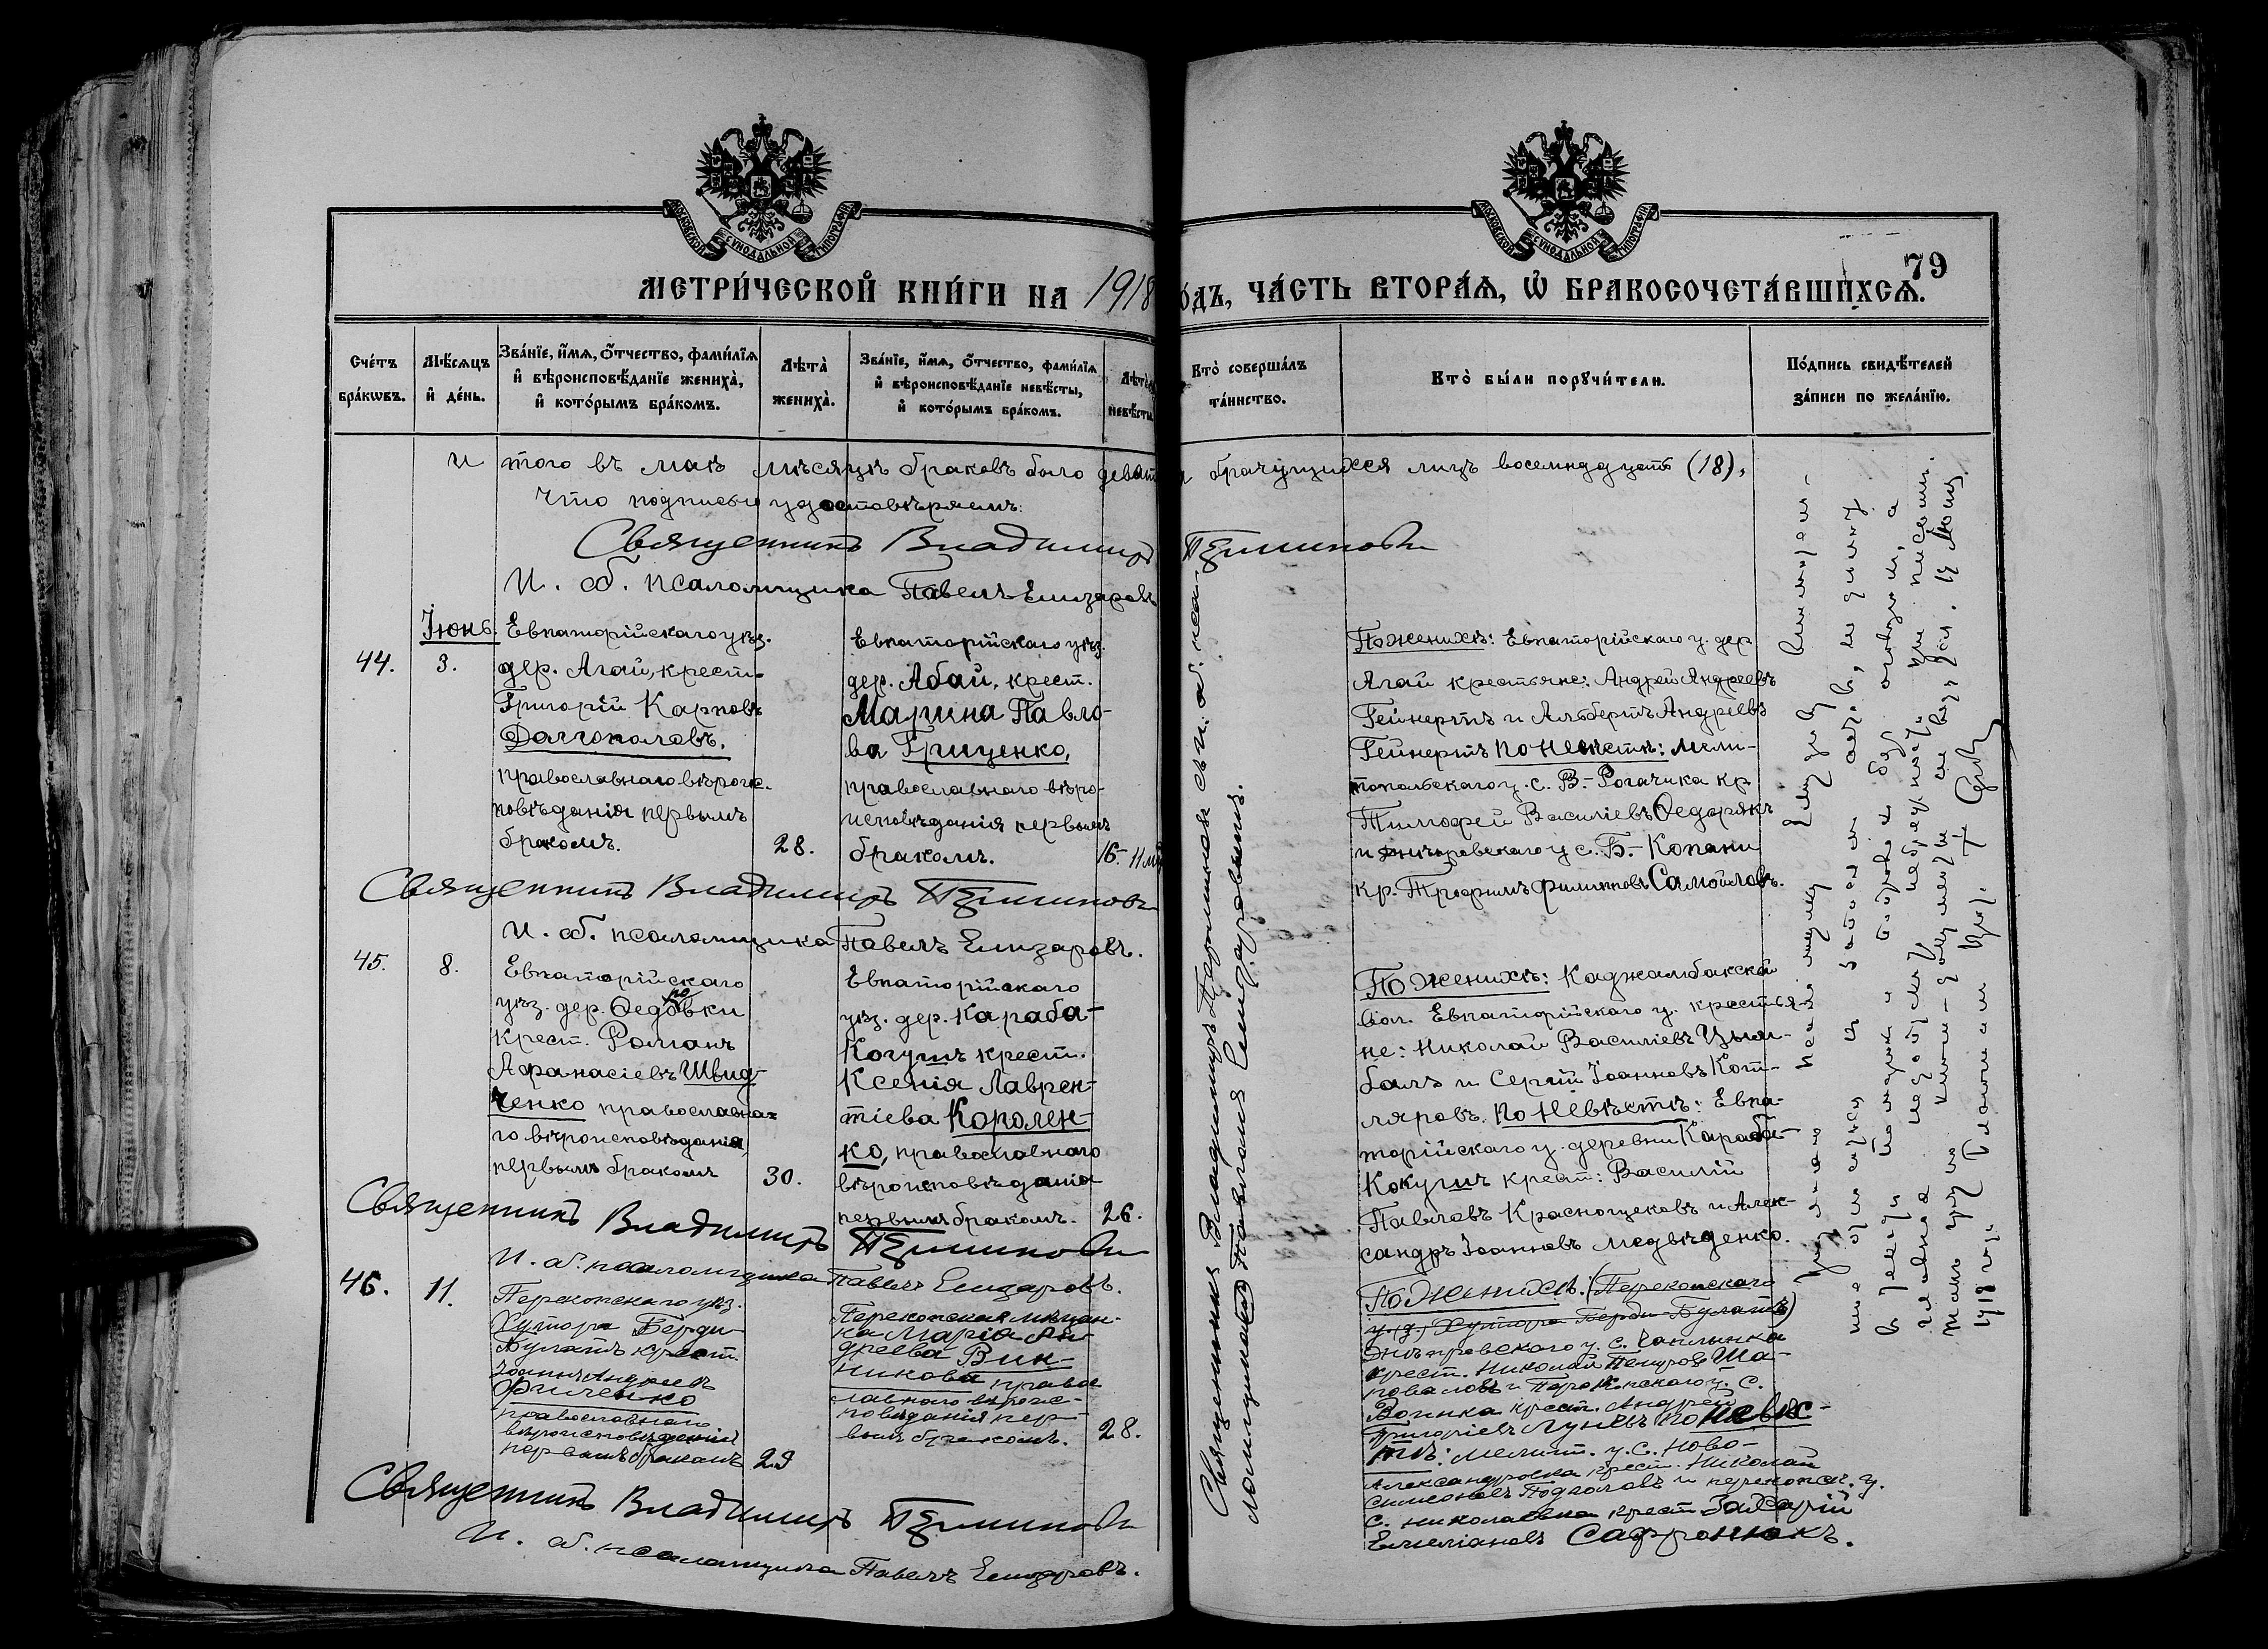 МОСКОВСКОЙ СУНОДАЛЬНОЙ ТИПОГРАФІИ
МОСКОВСКОЙ СУНОДАЛЬНОЙ ТИПОГРАФІИ
79
МЕТРИ́ЧЕСКОЙ КНИ́ГИ НА 1918
о́дъ, ЧА́СТЬ ВТОРА́Ѧ, Ѡ҆ БРАКОСОЧЕТА́ВШИХСѦ.
Сче́тъ бра́кѡвъ.
Мѣ́сѧцъ и҆ де́нь.
Зва́нїе, и҆́мѧ, ѻ҆́тчество, фами́лїѧ
и҆ вѣроисповѣ́данїе жениха̀,
и҆ кото́рымъ бра́комъ.
Лѣта̀ жениха̀.
Зва́нїе, и҆́мѧ, ѻ҆́тчество, фами́лїѧ
и҆ вѣроисповѣ́данїе невѣ́сты,
и҆ кото́рымъ бра́комъ.
Лѣта̀ невѣ́сты.
Кто̀ соверша́лъ
та́инство.
Кто̀ бы́ли порꙋчи́тели.
По́дпись свидѣ́телей
за́писи по жела́нїю.
Итого въ маѣ мѣсяцѣ браковъ было девят
и брачущихся лицъ восемнадцать (18),
что подписью удостовѣряемъ:
Священникъ Владимиръ
И. об. псаломщика Павелъ Елизаровъ
Іюнь.
44.
3.
Евпаторійскаго уѣз.
дер. Агай, крест.
Григорій Карповъ
Долгополовъ,
православнаго вѣроис-
повѣданія первымъ
бракомъ.
28.
Евпаторійскаго уѣз.
дер. Абай, крест.
Марина Павло-
ва Гриценко,
православнаго вѣро-
исповѣданія первымъ
бракомъ.
16. 11 м
По женихѣ: Евпаторійскаго у. дер
Агай крестьяне: Андрей Андреевъ
Гейнертъ и Альбертъ Андреевъ
Гейнертъ по невѣстѣ: Мели-
топольскаго у. с. В.-Рогачика кр
Тимофей Василіевъ Ѳедорякъ
и Днѣпровскаго у с. Б.-Копани
кр. Трофимъ Филипповъ Самойловъ.
Священникъ Владимиръ
И. об. псаломщика Павелъ Елизаровъ.
45.
8.
Евпаторійскаго
уѣз. дер. Ѳедоровки
крест. Романъ
Аѳанасіевъ Швид-
ченко православна-
го вѣроисповѣданія,
первымъ бракомъ
30.
Евпаторійскаго
уѣз. дер. Караба-
Когушъ крест.
Ксенія Лаврен-
тіева Королен-
ко, православнаго
вѣроисповѣданія
первымъ бракомъ.
26.
По женихѣ: Каджалбакской
вол. Евпаторійскаго у. крестья-
не: Николай Василіевъ Цым-
балъ и Сергій Іоанновъ Кот-
ляровъ. По невѣстѣ: Евпа-
торійскаго у. деревни Караба-
Кокушъ крест: Василій
Павловъ Краснощековъ и Алек-
сандръ Іоанновъ Медвѣденко.
Священникъ Владимиръ
И. об. псаломщика Павелъ Елизаровъ.
46.
11.
Перекопскаго уѣз.
Хутора Берди-
Булатъ крест.
Іоаннъ Андреевъ
Филенко
православнаго
вѣроисповѣданія
первымъ бракомъ
29
Перекопская мѣщан-
ка Марія Ан-
дреева Вин-
никова правос
лавнаго вѣроис-
повѣданія пер-
вымъ бракомъ.
28.
По женихѣ: (Перекопскаго
у. Хутора Берди-Булатъ)
Днѣпровскаго у. с. Чаплинка
крест. Николай Петровъ Ша-
поваловъ и Перекопскаго у. с.
Воинка крест. Андрей
Григоріевъ Луневъ По невѣс-
тѣ: Мелит. у. с. Ново-
Александровка крест. Николай
Симоновъ Подколовъ и перекопск. у.
с. Николаевка крест Захарій
Емеліановъ Сафронюкъ.
Священникъ Владимиръ
И. об. псаломщика Павелъ Елизаровъ.
Священникъ Владимиръ и. об. пса-
ломщика Павелъ Елизаровъ.